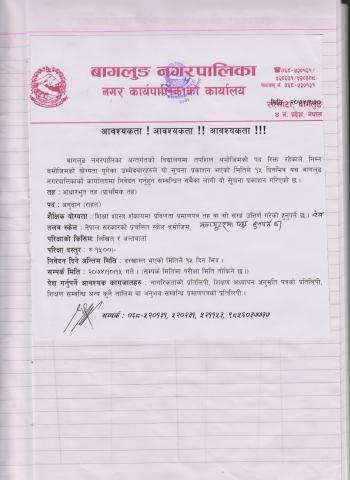 बागलुङ नगरपालिका
नगर कार्यपालिकाको कार्यालय
४ नं. प्रदेश, नेपाल
आवश्यकता ! आवश्यकता !! आवश्यकता !!!
बागलुङ नगरपालिका अन्तर्गतको विद्यालयमा तपशिल बमोजिमको पद रिक्त रहेकाले निम्न
बमोजिमको योग्यता पुगेका उम्मेदवारहरुले यो सूचना प्रकाशन भएको मितिले १५ दिनभित्र यस बागलुङ
नगरपालिकाको कार्यालयमा निवेदन गर्नुहुन सम्बन्धित सबैका लागी यो सूचना प्रकाशन गरिएको छ ।
तह : आधारभुत तह (प्राथमिक तह)
पद : अनुदान (राहत)
शैक्षिक योग्यता : शिक्षा शास्त्र संकायमा प्रविणता प्रमाणपत्र तह वा सो सरह उत्तिर्ण गरेको हुनुपर्ने छ ।
तलव स्केल : नेपाल सरकारको प्रचलित स्केल बमोजिम,
परिक्षाको किसिम: लिखित र अन्तर्वार्ता
परिक्षा दस्तुर : रु १५००/-
निवेदन दिने अन्तिम मिति : दरखास्त भएको मितिले १५ दिन भित्र ।
सम्पर्क मिति : २०७४/१०/१५ गते । (सम्पर्क मितिमा परीक्षा मिति तोकिने छ ।)
पेश गर्नुपर्ने आवश्यक कागजातहरु : नागरिकताको प्रतिलिपी, शिक्षण अध्यापन अनुमति पत्रको प्रतिलिपी,
शिक्षण सम्बन्धि अन्य कुनै तालिम वा अनुभव सम्बन्धि प्रमाणपत्रको प्रतिलिपी ।
सम्पर्क : ०६८-५२०१३१,